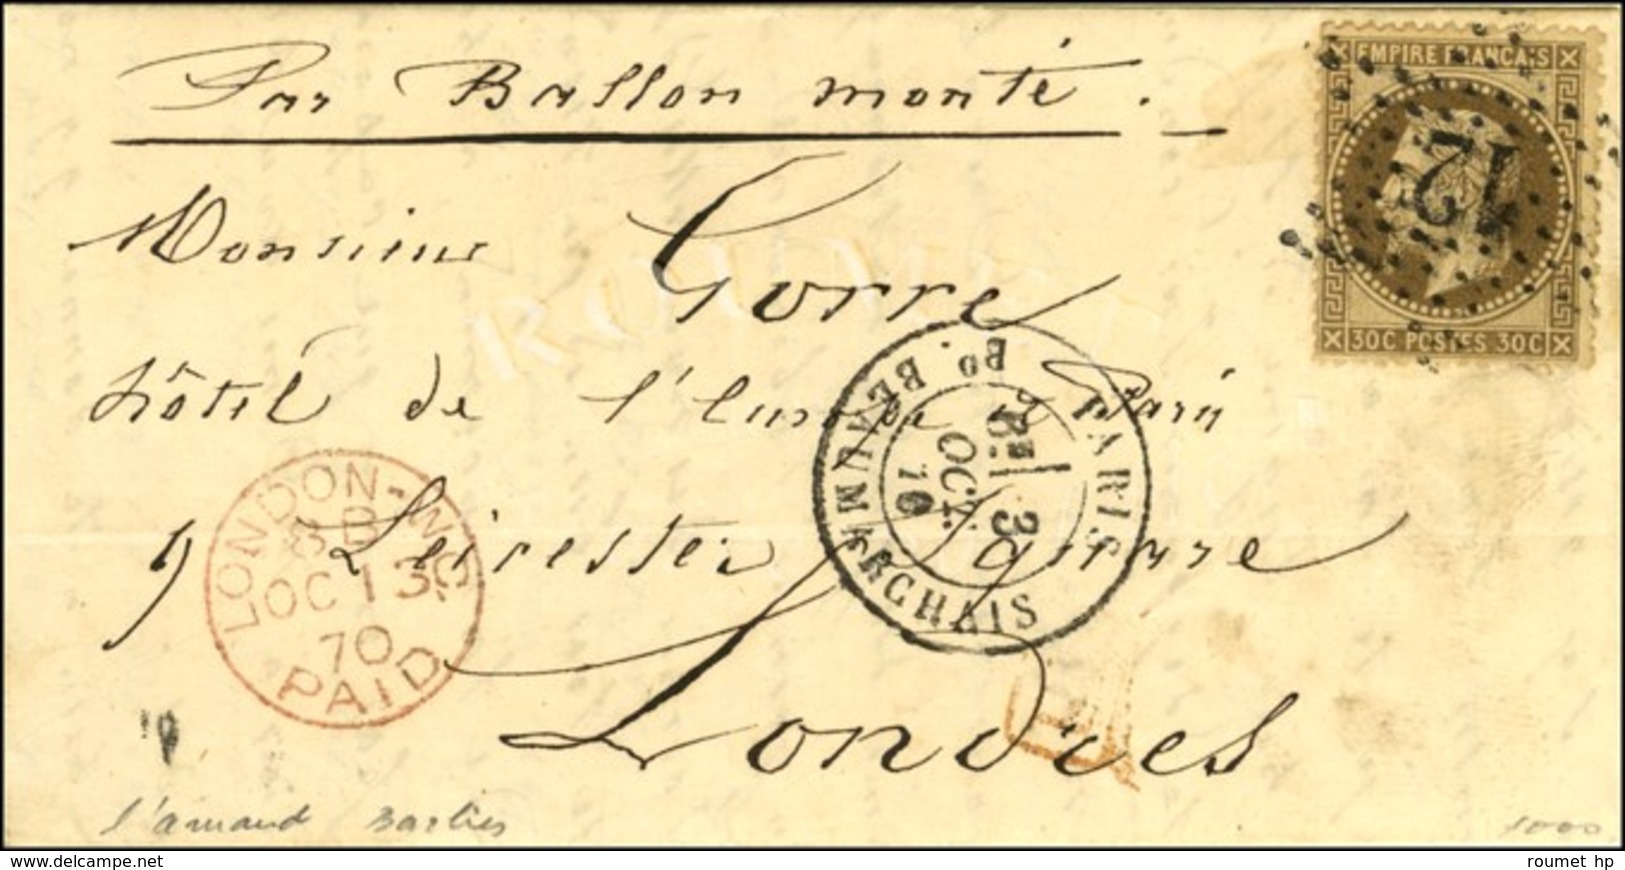 Par Ballon monté.
EMPIRE FRANCAIS
12
30C POSTES 30C
Monsieur Gorre
ROUMET
hôtel de l'Europe
PARIS
Bd. BEAUMARCHAIS
3
OCT.
9 Leicester Square
LONDON-W.C
OC 13
70
PAID
Londres
l'armand Barbès
1000
www.delcampe.com
roumet hp